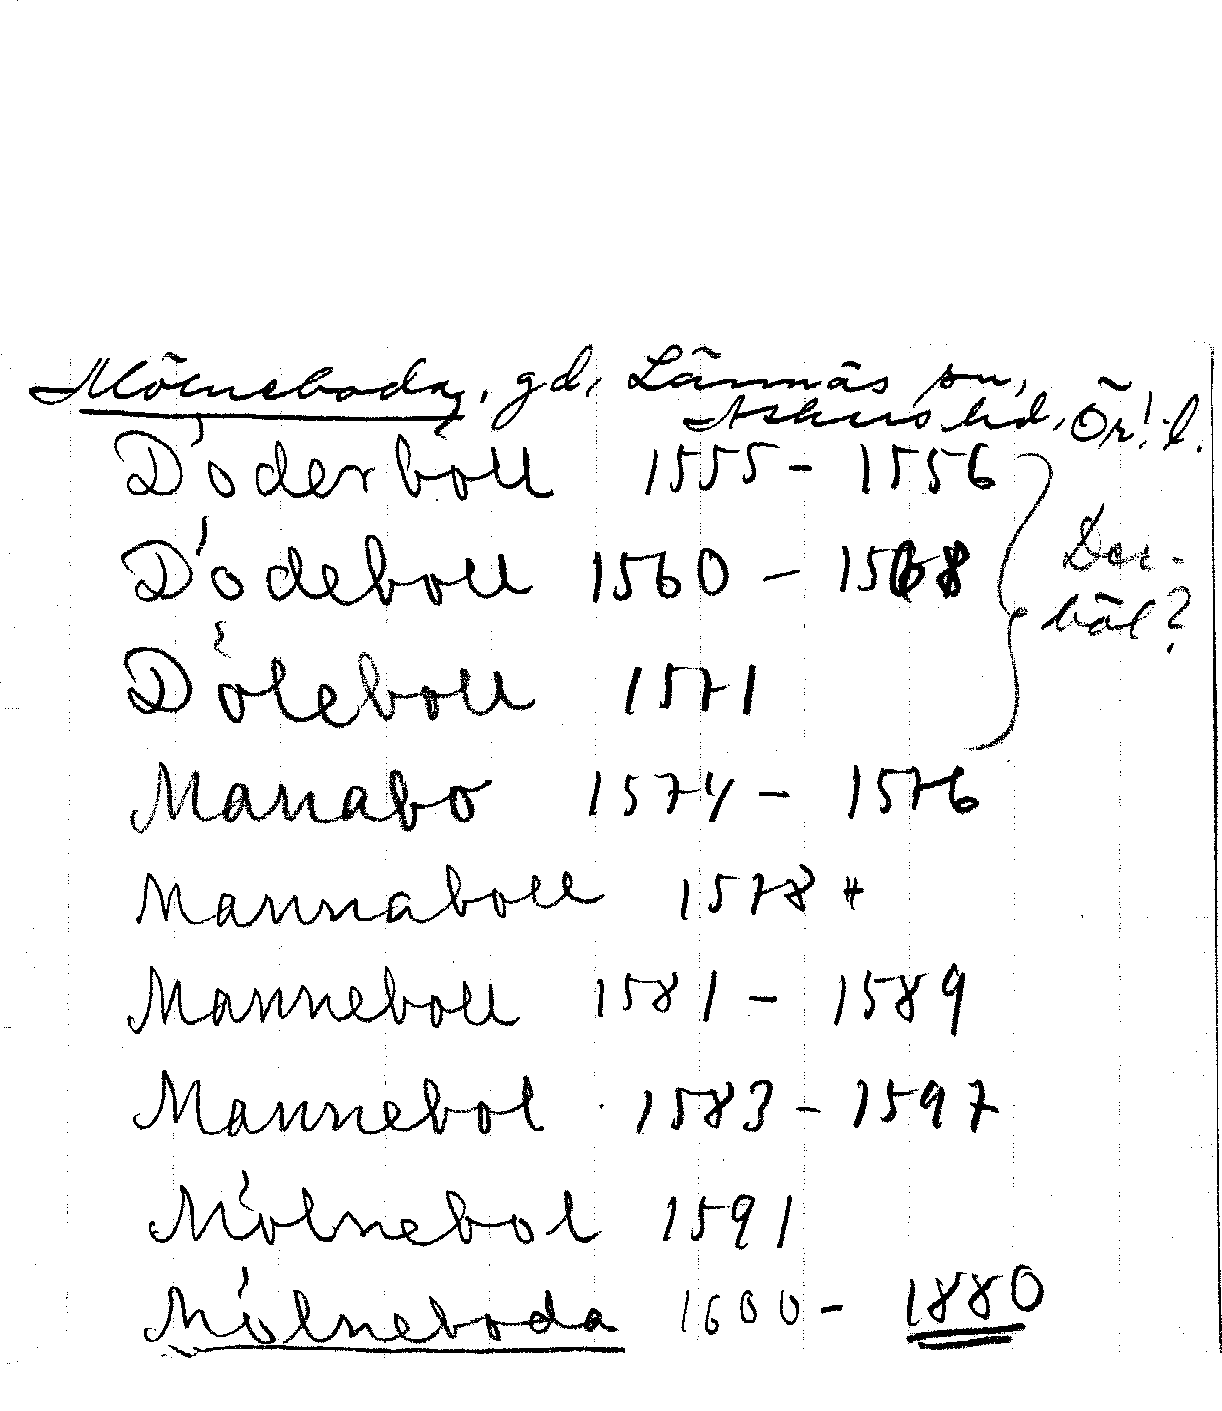 Mölneboda, gd, Lännäs sn,
Askers hd, Ör. l.
Döderboll 1555 - 1556
Dödeboll 1560 - 1568
Döleboll 1571
Manabo 1574 - 1576
Mannaboll 1578 +
Manneboll 1581 - 1589
Mannebol 1583 - 1597
Mölnebol 1591
Mölneboda 1600 - 1880